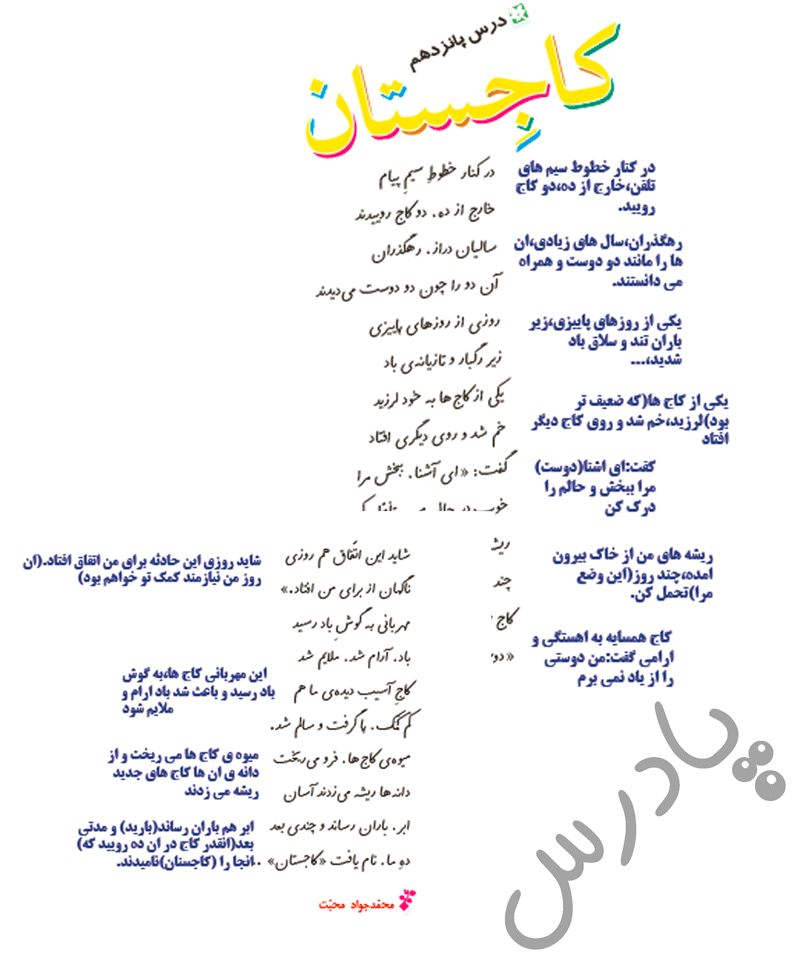 درس پانزدهم
کاجِستان
در کنار خطوطِ سیمِ پیام
خارج از ده، دو کاج روییدند
سالیان دراز، رهگذران
آن دو را چون دو دوست می‌دیدند
روزی از روزهای پاییزی
زیر رگبار و تازیانه‌ی باد
یکی از کاج ها به خود لرزید
خم شد و روی دیگری افتاد
گفت: «ای آشنا، ببخش مرا
ریشه
چند
کاج
«دو
در کنار خطوط سیم های
تلفن،خارج از ده،دو کاج
رویید.
رهگذران،سال های زیادی،ان
ها را مانند دو دوست و همراه
می دانستند.
یکی از روزهای پاییزی،زیر
باران تند و سلاق باد
شدید،...
یکی از کاج ها(که ضعیف تر
بود)لرزید،خم شد و روی کاج دیگر
افتاد
گفت:ای اشنا(دوست)
مرا ببخش و حالم را
درک کن
ریشه های من از خاک بیرون
امده،چند روز(این وضع
مرا)تحمل کن.
کاج همسایه به اهستگی و
ارامی گفت:من دوستی
را از یاد نمی برم
شاید این اتّفاق هم روزی
ناگهان از برای من افتاد.»
مهربانی به گوشِ باد رسید
باد، آرام شد، ملایم شد
کاجِ آسیب دیده‌ی ما هم
کم کمک، پا گرفت و سالم شد.
میوه‌ی کاج‌ها، فرو می‌ریخت
دانه‌ها ریشه می‌زدند آسان
ابر، باران رساند و چندی بعد
دهِ ما، نام یافت «کاجستان»
شاید روزی این حادثه برای من اتفاق افتاد.(ان
روز من نیازمند کمک تو خواهم بود)
این مهربانی کاج ها،به گوش
باد رسید و باعث شد باد ارام و
ملایم شود
میوه ی کاج ها می ریخت و از
دانه ی ان ها کاج های جدید
ریشه می زدند
ابر هم باران رساند(بارید) و مدتی
بعد(انقدر کاج در ان ده رویید که)
انجا را (کاجستان)نامیدند.
محمّدجواد محبّت
پادرس